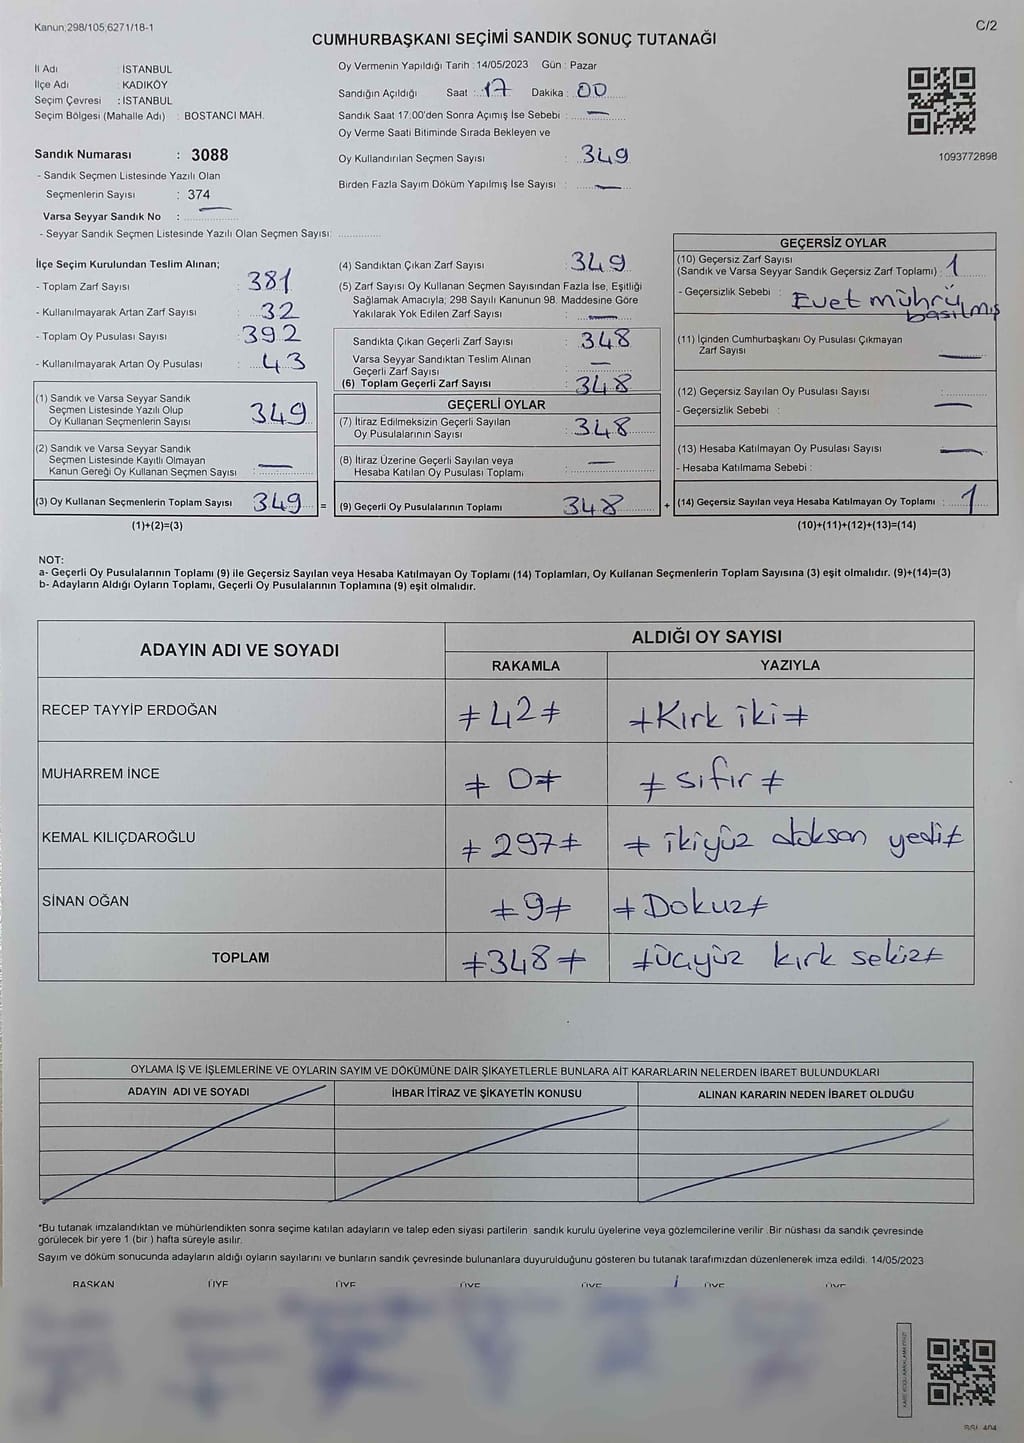 Kanun;298/105;6271/18-1
C/2
CUMHURBAŞKANI SEÇİMİ SANDIK SONUÇ TUTANAĞI
İl Adı : İSTANBUL
İlçe Adı : KADIKÖY
Seçim Çevresi : İSTANBUL
Seçim Bölgesi (Mahalle Adı) : BOSTANCI MAH.
Sandık Numarası : 3088
- Sandık Seçmen Listesinde Yazılı Olan
Seçmenlerin Sayısı : 374
Varsa Seyyar Sandık No : —
- Seyyar Sandık Seçmen Listesinde Yazılı Olan Seçmen Sayısı: ..............
Oy Vermenin Yapıldığı Tarih : 14/05/2023 Gün : Pazar
Sandığın Açıldığı Saat : 17 Dakika : 00
Sandık Saat 17.00'den Sonra Açımış İse Sebebi : —
Oy Verme Saati Bitiminde Sırada Bekleyen ve
Oy Kullandırılan Seçmen Sayısı : 349
Birden Fazla Sayım Döküm Yapılmış İse Sayısı : —
1093772898
İlçe Seçim Kurulundan Teslim Alınan;
- Toplam Zarf Sayısı : 381
- Kullanılmayarak Artan Zarf Sayısı : 32
- Toplam Oy Pusulası Sayısı : 392
- Kullanılmayarak Artan Oy Pusulası : 43
(1) Sandık ve Varsa Seyyar Sandık
Seçmen Listesinde Yazılı Olup
Oy Kullanan Seçmenlerin Sayısı : 349
(2) Sandık ve Varsa Seyyar Sandık
Seçmen Listesinde Kayıtlı Olmayan
Kanun Gereği Oy Kullanan Seçmen Sayısı : —
(3) Oy Kullanan Seçmenlerin Toplam Sayısı 349 =
(1)+(2)=(3)
(4) Sandıktan Çıkan Zarf Sayısı : 349
(5) Zarf Sayısı Oy Kullanan Seçmen Sayısından Fazla İse, Eşitliği
Sağlamak Amacıyla; 298 Sayılı Kanunun 98. Maddesine Göre
Yakılarak Yok Edilen Zarf Sayısı : —
Sandıkta Çıkan Geçerli Zarf Sayısı : 348
Varsa Seyyar Sandıktan Teslim Alınan
Geçerli Zarf Sayısı : —
(6) Toplam Geçerli Zarf Sayısı : 348
GEÇERLİ OYLAR
(7) İtiraz Edilmeksizin Geçerli Sayılan
Oy Pusulalarının Sayısı : 348
(8) İtiraz Üzerine Geçerli Sayılan veya
Hesaba Katılan Oy Pusulası Toplamı : —
(9) Geçerli Oy Pusulalarının Toplamı 348 +
GEÇERSİZ OYLAR
(10) Geçersiz Zarf Sayısı
(Sandık ve Varsa Seyyar Sandık Geçersiz Zarf Toplamı) : 1
- Geçersizlik Sebebi : Evet mührü
basılmış
(11) İçinden Cumhurbaşkanı Oy Pusulası Çıkmayan
Zarf Sayısı —
(12) Geçersiz Sayılan Oy Pusulası Sayısı :
- Geçersizlik Sebebi : —
(13) Hesaba Katılmayan Oy Pusulası Sayısı —
- Hesaba Katılmama Sebebi :
(14) Geçersiz Sayılan veya Hesaba Katılmayan Oy Toplamı : 1
(10)+(11)+(12)+(13)=(14)
NOT:
a- Geçerli Oy Pusulalarının Toplamı (9) ile Geçersiz Sayılan veya Hesaba Katılmayan Oy Toplamı (14) Toplamları, Oy Kullanan Seçmenlerin Toplam Sayısına (3) eşit olmalıdır. (9)+(14)=(3)
b- Adayların Aldığı Oyların Toplamı, Geçerli Oy Pusulalarının Toplamına (9) eşit olmalıdır.
ADAYIN ADI VE SOYADI
ALDIĞI OY SAYISI
RAKAMLA YAZIYLA
RECEP TAYYİP ERDOĞAN ≠42≠ ≠Kırk iki≠
MUHARREM İNCE ≠ 0≠ ≠ sıfır ≠
KEMAL KILIÇDAROĞLU ≠ 297≠ ≠ ikiyüz doksan yedi≠
SİNAN OĞAN ≠9≠ ≠Dokuz≠
TOPLAM ≠348≠ ≠üçyüz kırk sekiz≠
OYLAMA İŞ VE İŞLEMLERİNE VE OYLARIN SAYIM VE DÖKÜMÜNE DAİR ŞİKAYETLERLE BUNLARA AİT KARARLARIN NELERDEN İBARET BULUNDUKLARI
ADAYIN ADI VE SOYADI İHBAR İTİRAZ VE ŞİKAYETİN KONUSU ALINAN KARARIN NEDEN İBARET OLDUĞU
*Bu tutanak imzalandıktan ve mühürlendikten sonra seçime katılan adayların ve talep eden siyasi partilerin sandık kurulu üyelerine veya gözlemcilerine verilir .Bir nüshası da sandık çevresinde
görülecek bir yere 1 (bir ) hafta süreyle asılır.
Sayım ve döküm sonucunda adayların aldığı oyların sayılarını ve bunların sandık çevresinde bulunanlara duyurulduğunu gösteren bu tutanak tarafımızdan düzenlenerek imza edildi. 14/05/2023
BAŞKAN ÜYE ÜYE ÜYE ÜYE ÜYE ÜYE